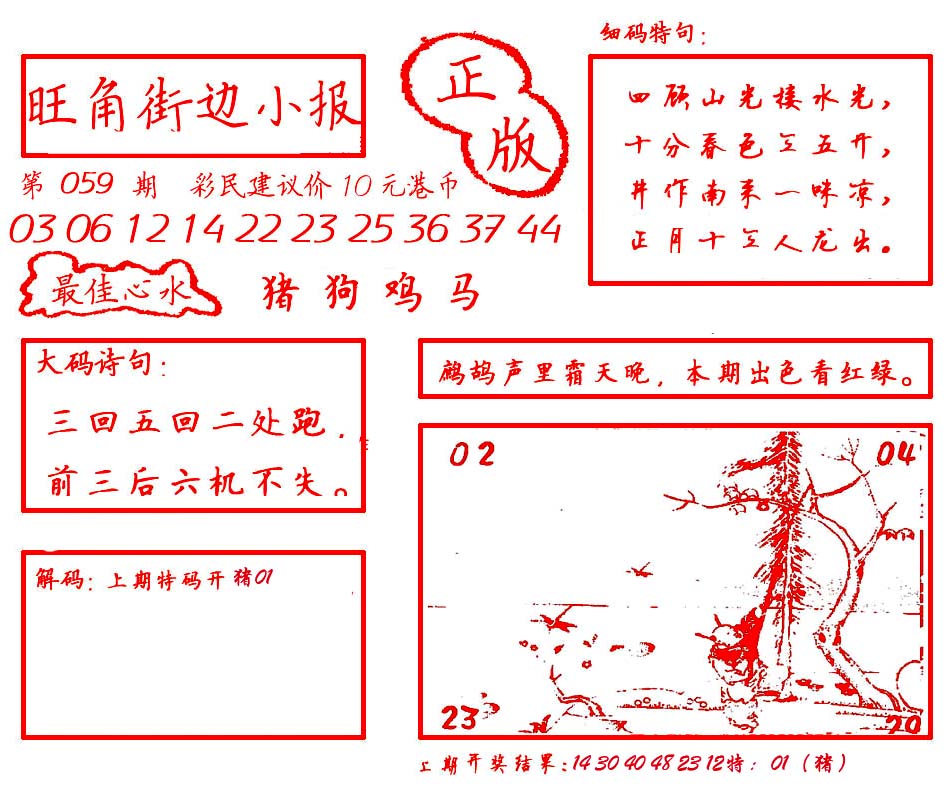 旺角街边小报
正版
第 059 期 彩民建议价10元港币
03 06 12 14 22 23 25 36 37 44
最佳心水 猪 狗 鸡 马
细码特句：
四顾山光接水光，
十分春色三五开，
井作南来一味凉，
正月十三人龙出。
大码诗句：
三回五回二处跑．
前三后六机不失。
鹧鸪声里霜天晚，本期出色看红绿。
解码：上期特码开猪01
02 04
23 20
上期开奖结果：14 30 40 48 23 12特：01（猪）